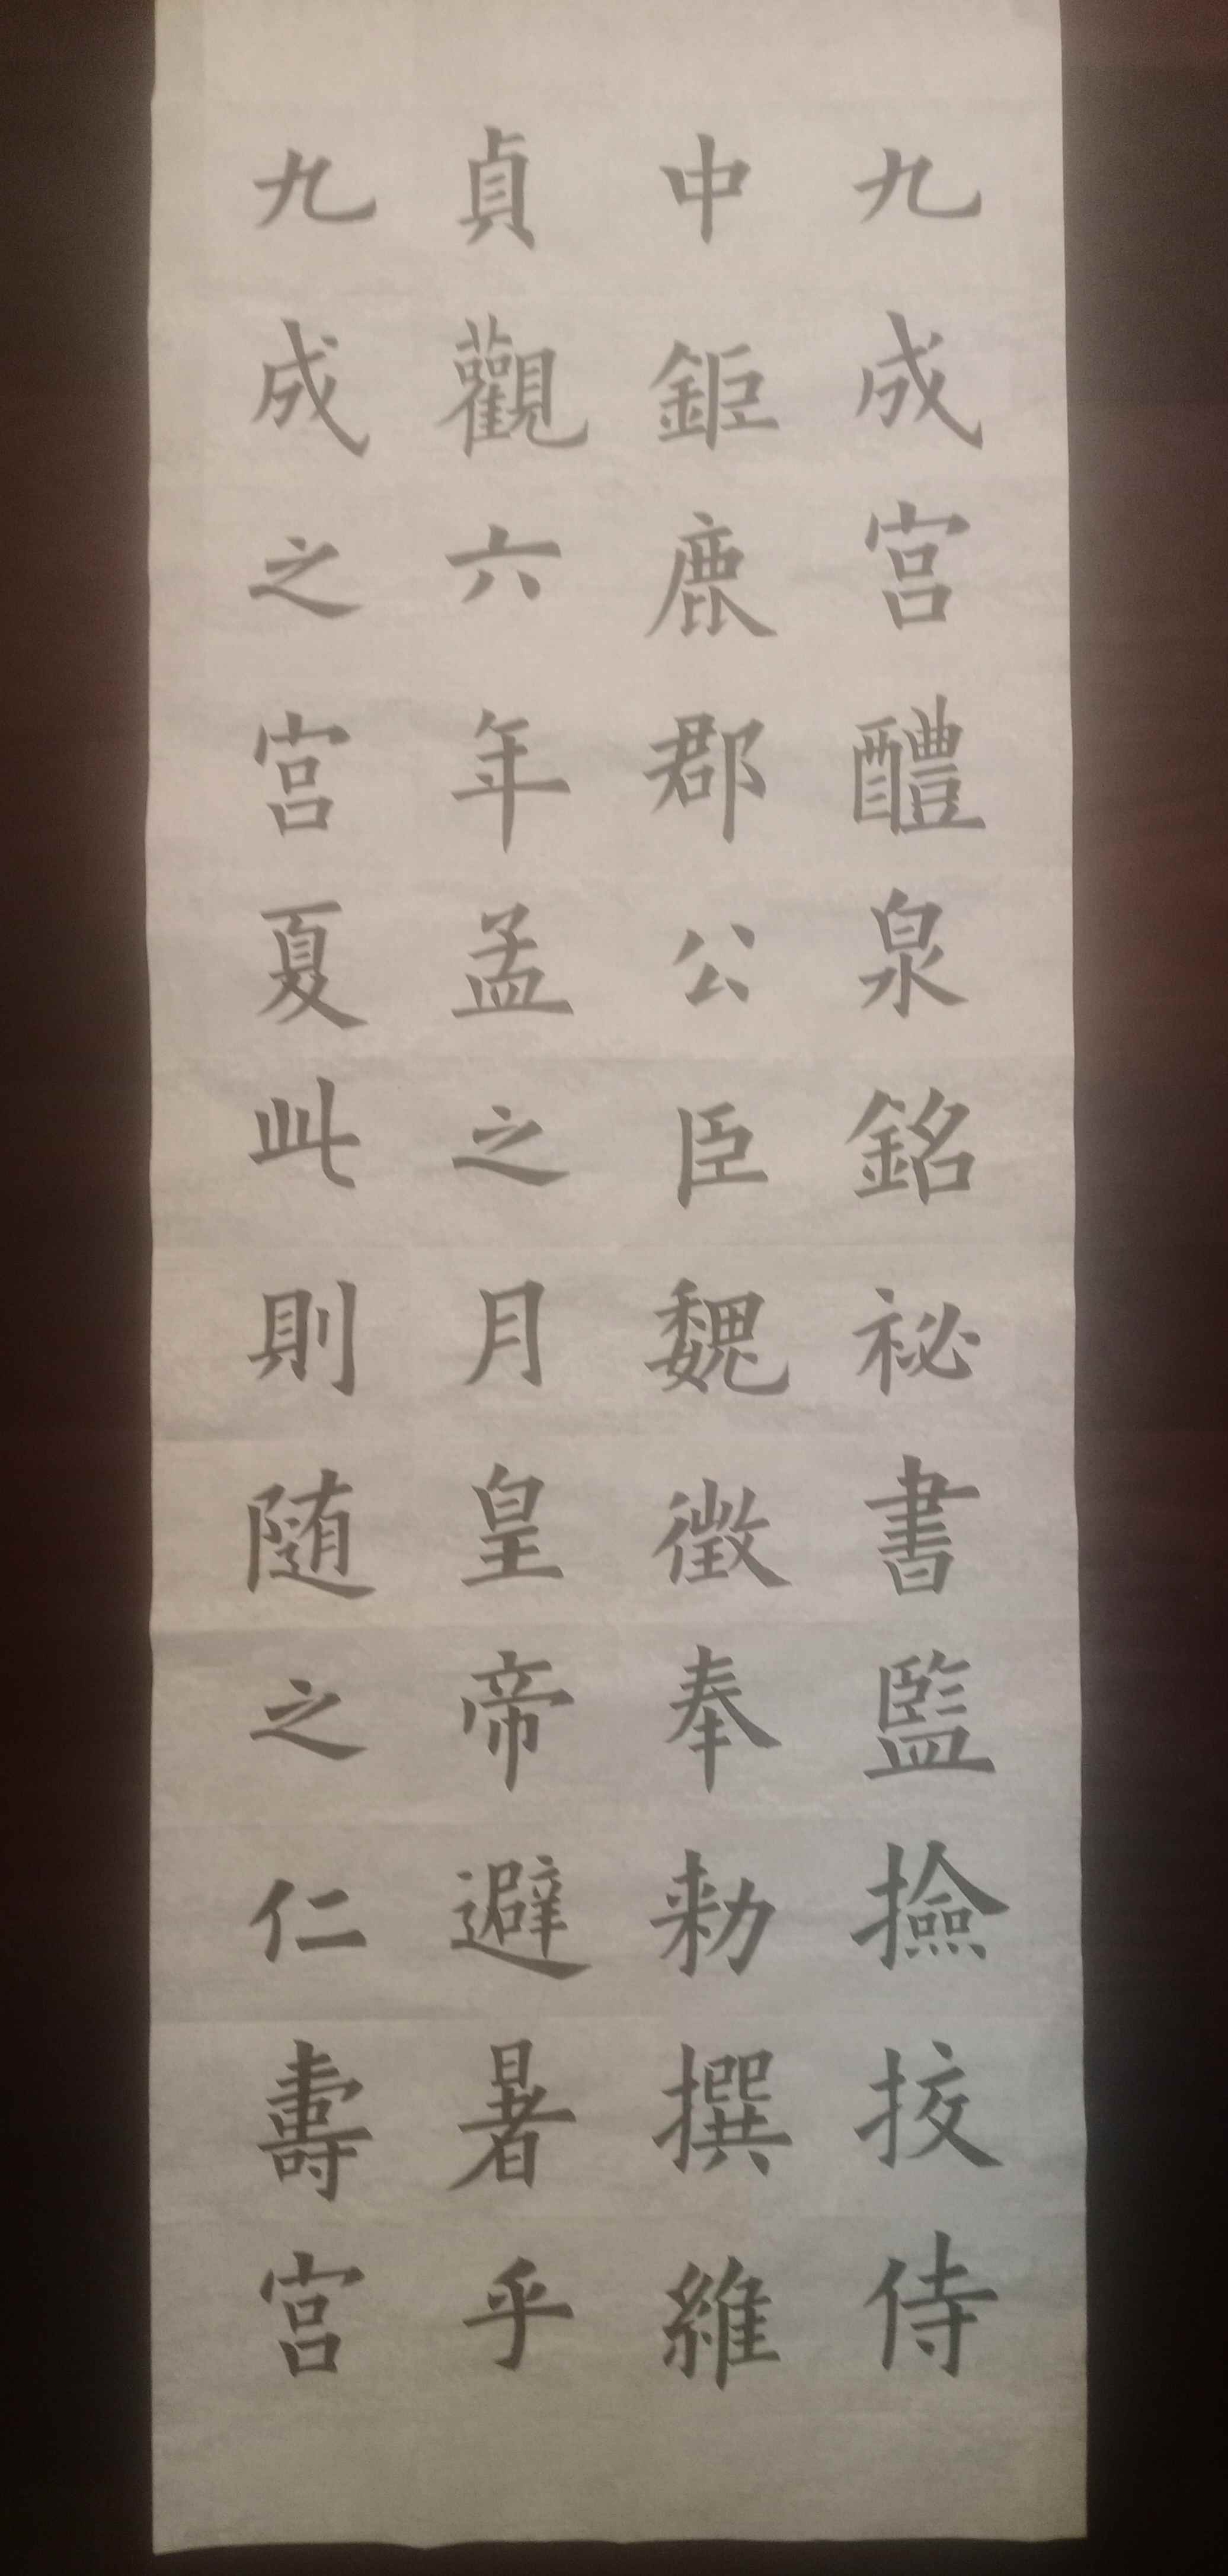 九成宮醴泉銘祕書監撿挍侍
中鉅鹿郡公臣魏徵奉勑撰維
貞觀六年孟之月皇帝避暑乎
九成之宮夏此則随之仁壽宮